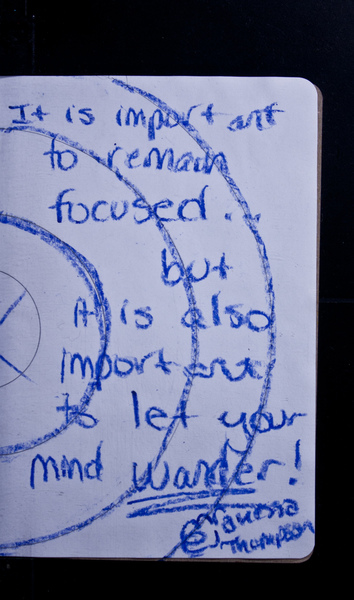 It is important
to remain
focused...
but
it is also
important
to let your
mind wander!
Thompson